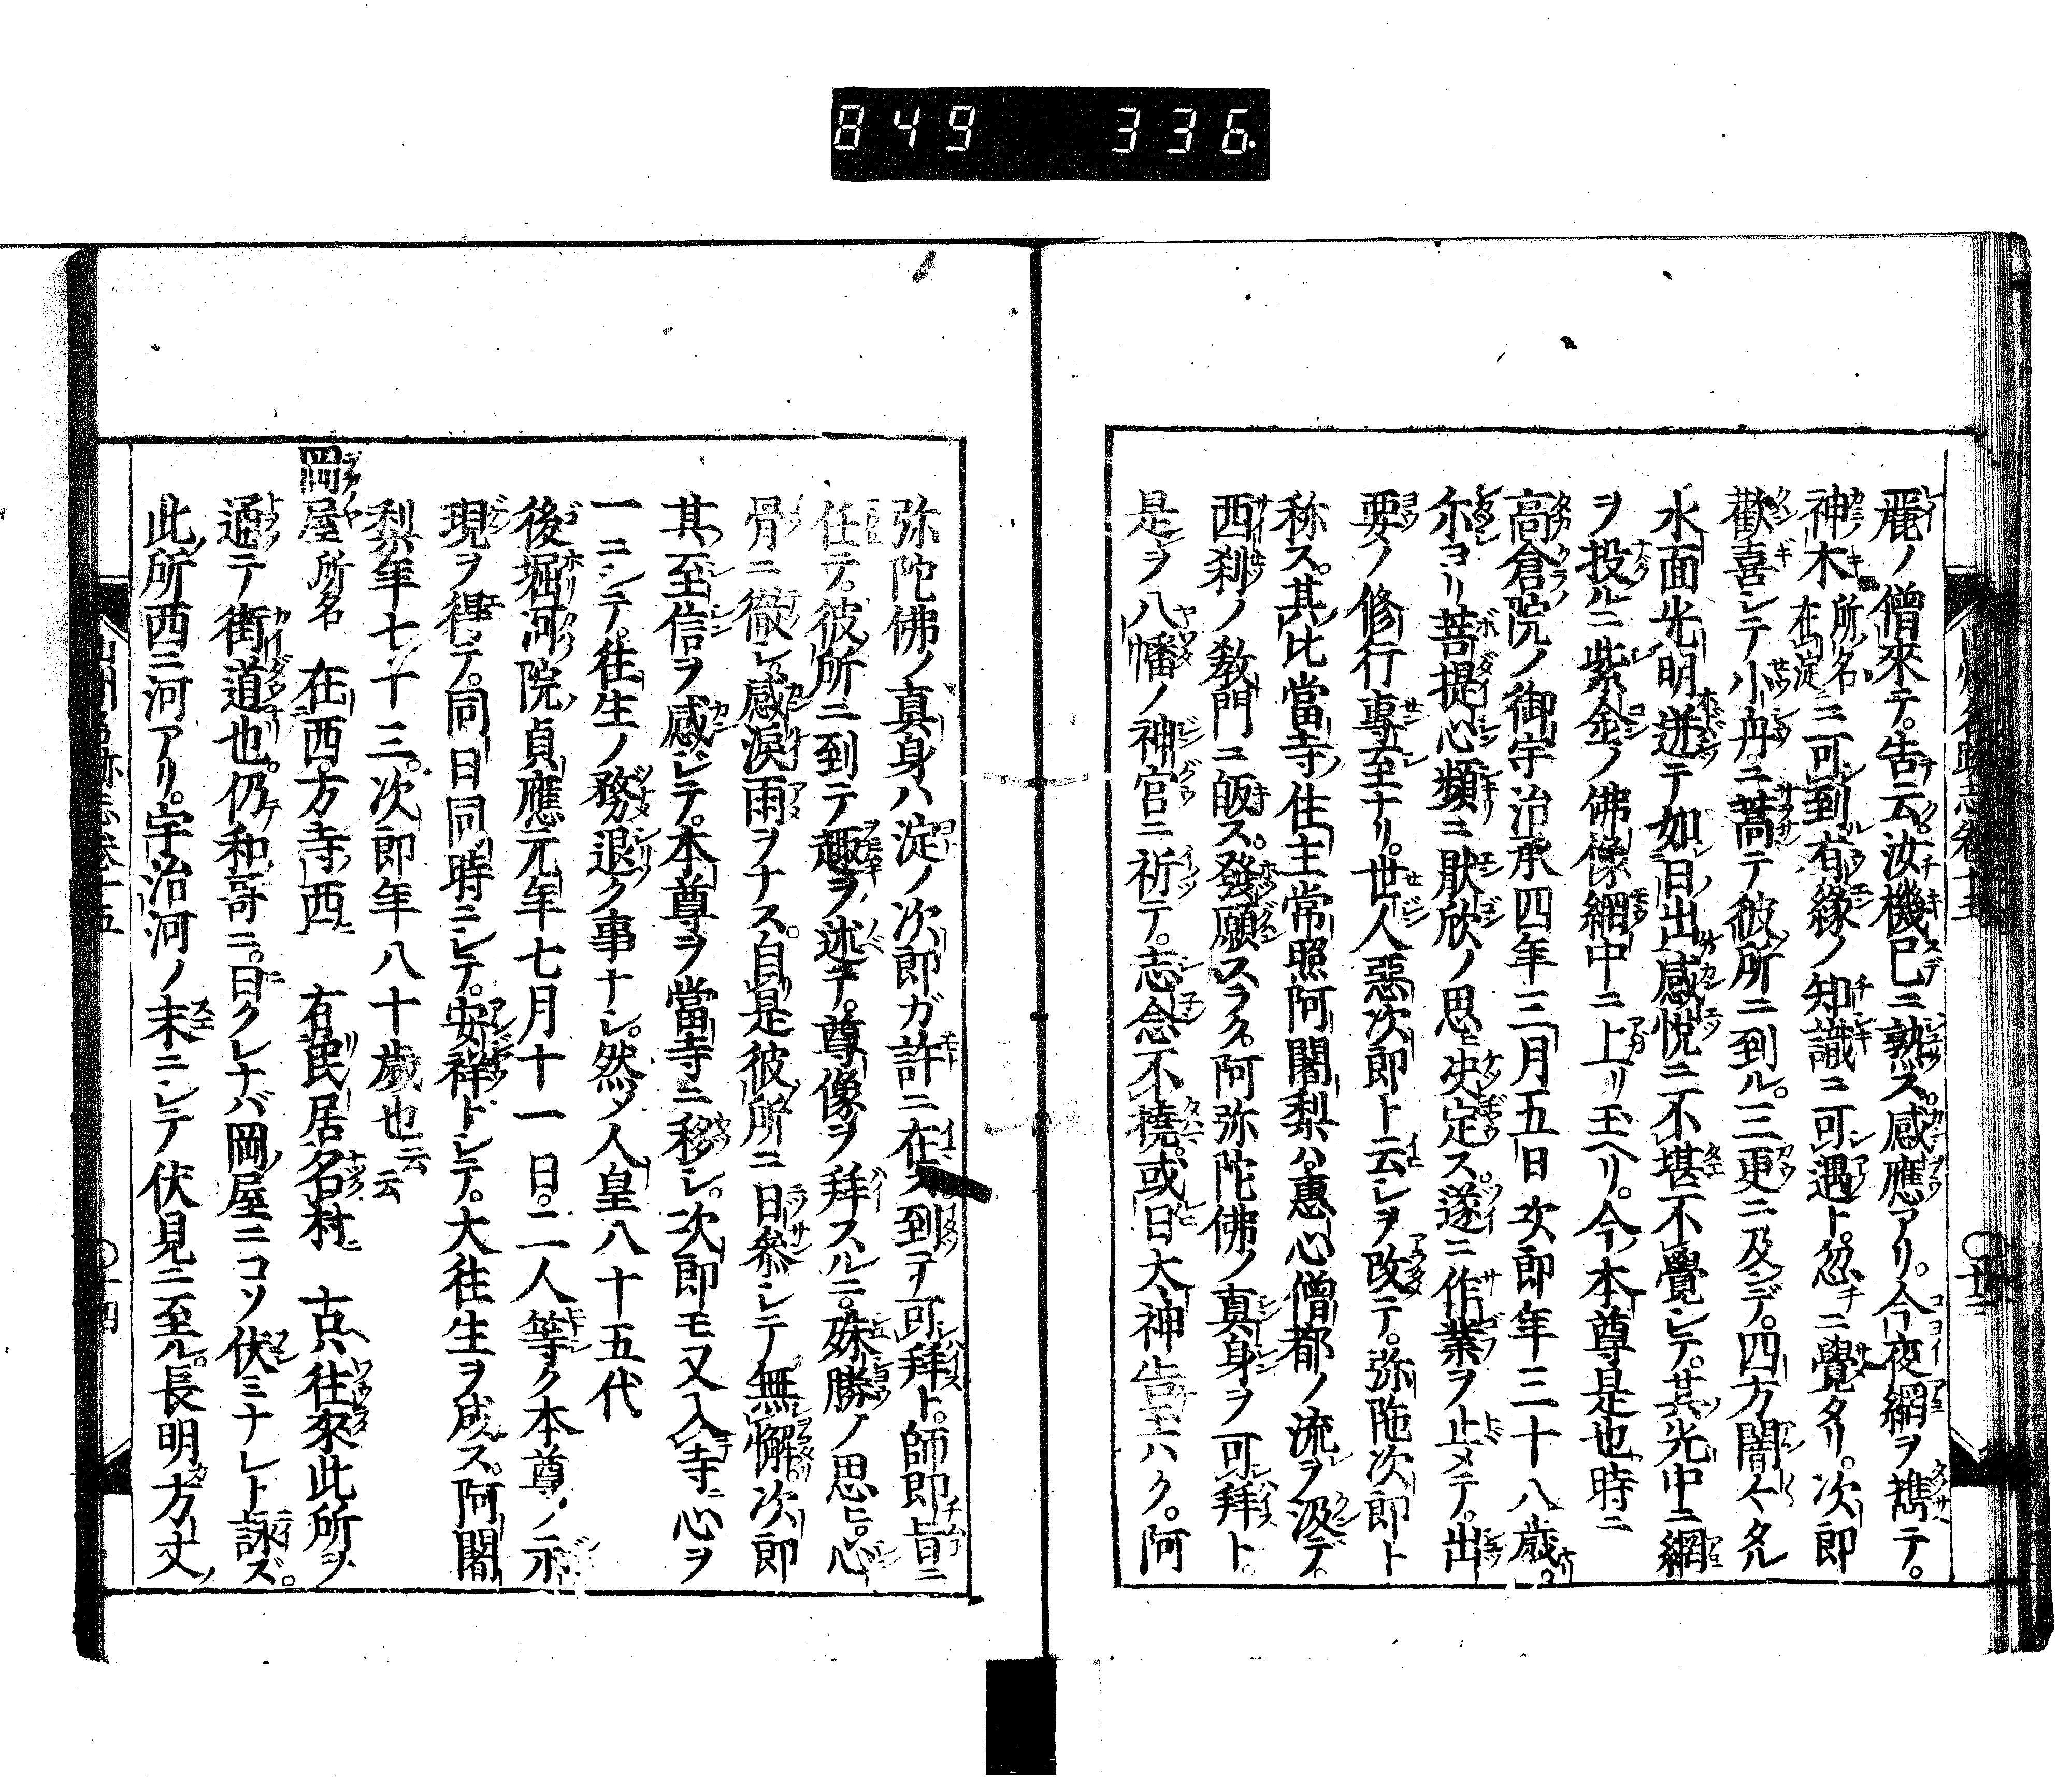 849 336
麗ノ僧來テ。告云。汝機已ニ熟ス。感應アリ。今夜網ヲ携テ。
神木所名在淀ニ可到。有緣ノ知識ニ可遇ト。忽チニ覺タリ。次郎
歡喜シテ小舟ニ棹テ彼所ニ到ル。三更ニ及デ。四方闇々タル
水面光明迸テ如日出。感悅ニ不堪不覺シテ。其光中ニ網
ヲ投ルニ紫金ノ佛像網中ニ上リ玉ヘリ。今本尊是也時ニ
高倉院ノ御宇治承四年三月五日次郎年三十八歲。
尒ヨリ菩提心頻ニ猒欣ノ思ヒ决定ス。遂ニ作業ヲ止メテ。出
要ノ修行專至ナリ。世人惡次郎ト云シヲ改テ。弥陁次郎ト
称ス。其比當寺住主常照阿闍梨ハ。惠心僧都ノ流ヲ汲デ。
西刹ノ敎門ニ皈ス。發願スラク。阿弥陀佛ノ真身ヲ可拜ト。
是ヲ八幡ノ神宮ニ祈テ。志念不撓。或日大神告玉ハク。阿
弥陀佛ノ真身ハ淀ノ次郎ガ許ニ在ス到ヲ可拜ト。師即旨ニ
任テ。彼所ニ到テ趣ヲ述テ。尊像ヲ拜スルニ。殊勝ノ思ヒ。心
骨ニ徹シ。感淚雨ヲナス。自是彼所ニ日參シテ無懈。次郎
其至信ヲ感ジテ。本尊ヲ當寺ニ移シ。次郎モ又入寺ニ心ヲ
一ニシテ。往生ノ務退ク事ナシ。然メ人皇八十五代
後堀河院貞應元年七月十一日。二人等ク本尊ノ示
現ヲ得テ。同日同時ニシテ。安祥トシテ。大往生ヲ成ス。阿闍
梨年七十三。次郎年八十歲也云云
岡屋所名 在西方寺西 有民居名村ニ 古ハ往來此所ヲ
通テ街道也。仍テ和哥ニ。日クレナバ岡ノ屋ニコソ伏ミナレト詠ズ。
此所西ニ河アリ。宇治河ノ末ニシテ伏見ニ至ル。長明方丈ノ